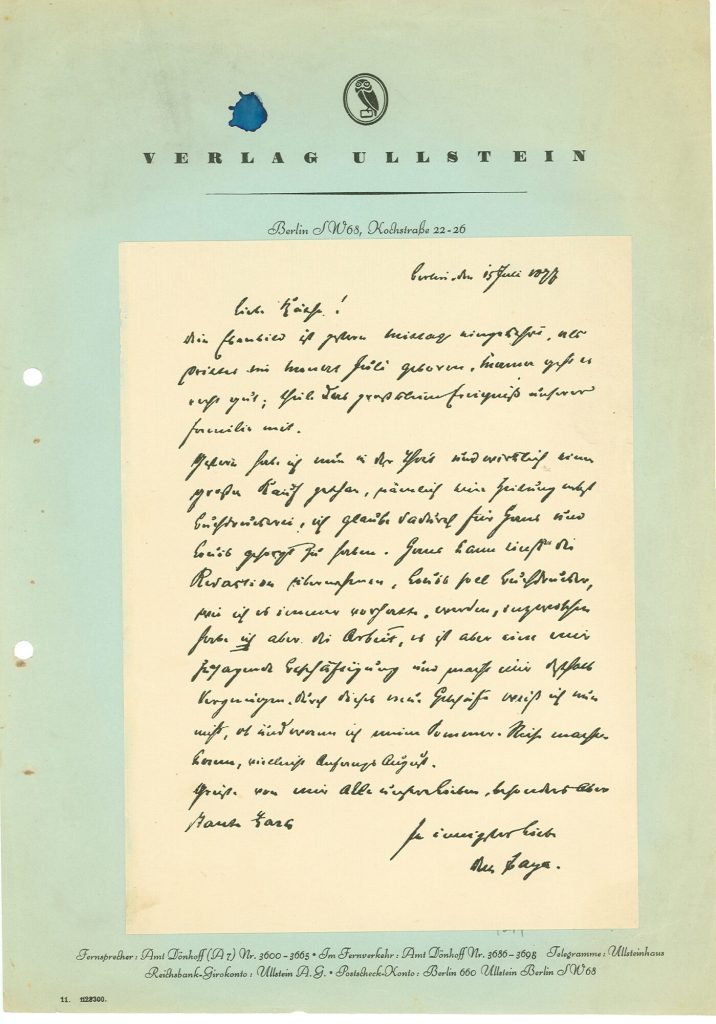 VERLAG ULLSTEIN
Berlin SW68, Kochstraße 22-26
Berlin, den 15 Juli 1877
Liebe Käthe!
Dein Ebenbild ist gestern Mittag eingekehrt, als
drittes im Monat Juli geboren. Mama geht es
recht gut; theile das große Ereigniß unserer
Familie mit.
Gestern habe ich nun in der That und wirklich einen
großen Kauf gethan, nämlich eine Zeitung nebst
Buchdruckerei, ich glaube dadurch für Hans und
Louis gesorgt zu haben. Hans kann einst die
Redaction übernehmen, Louis soll Buchdrucker,
wie ich es immer vorhatte, werden, inzwischen
habe ich aber die Arbeit, es ist aber eine mir
zusagende Beschäftigung und macht mir deshalb
Vergnügen. Durch dieses neue Geschäft weiß ich nun
nicht, ob und wann ich meine Sommer-Reise machen
kann, vielleicht Anfangs August.
Grüße von mir Alle unsere Lieben, besonders aber
Tante
In innigster Liebe
Dein Papa.
Fernsprecher: Amt Dönhoff (A7) Nr. 3600-3665 • Im Fernverkehr: Amt Dönhoff Nr. 3686-3698 Telegramme: Ullsteinhaus
Reichsbank-Girokonto: Ullstein A.G. • Postscheck-Konto: Berlin 660 Ullstein Berlin SW68
11. n28300.